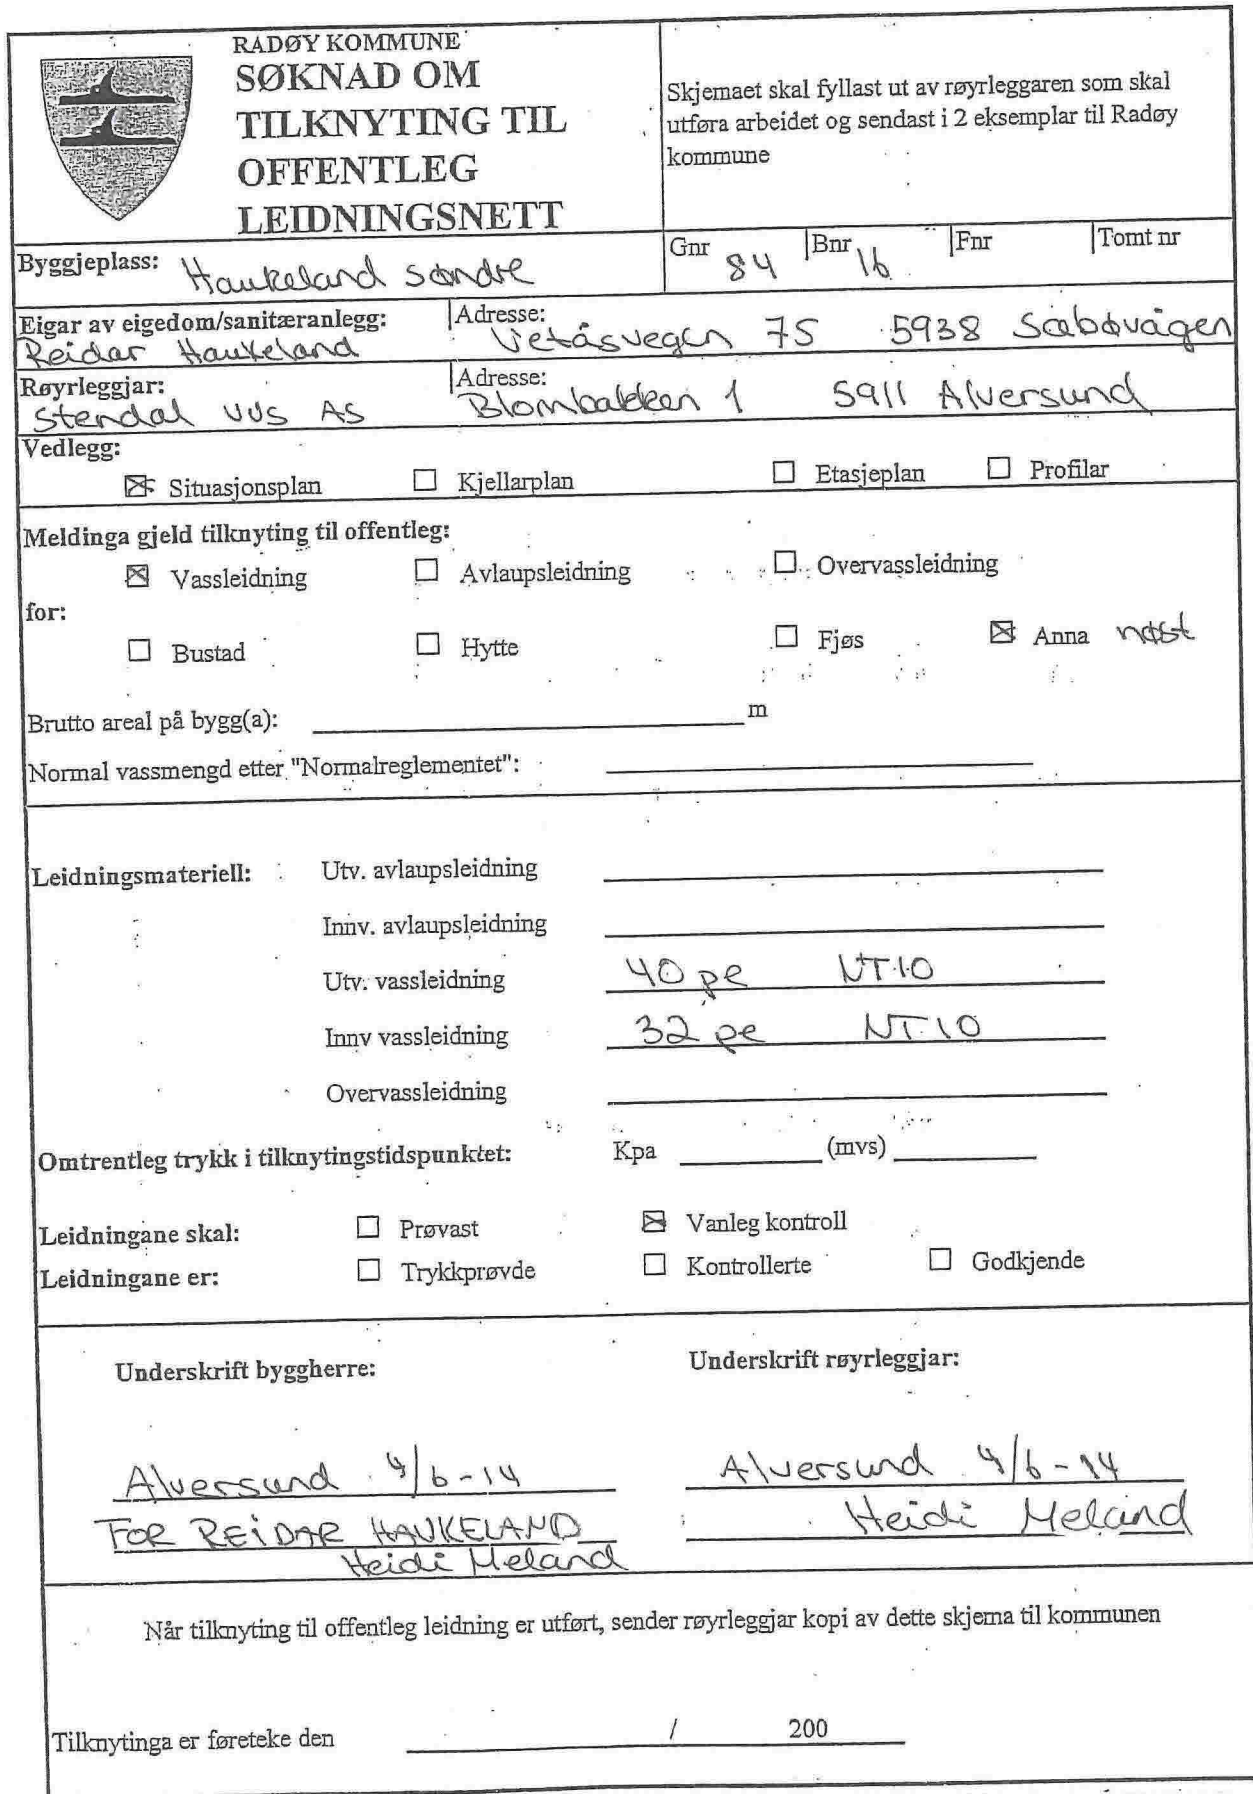 RADØY KOMMUNE
SØKNAD OM
TILKNYTING TIL
OFFENTLEG
LEIDNINGSNETT
Skjemaet skal fyllast ut av røyrleggaren som skal
utføra arbeidet og sendast i 2 eksemplar til Radøy
kommune
Byggjeplass: Haukeland søndre
Gnr 84 Bnr 16 Fnr Tomt nr
Eigar av eigedom/sanitæranlegg: Adresse:
Reidar Haukeland Vetåsvegen 75 5938 Sæbøvågen
Røyrleggjar: Adresse:
Stendal VVS AS Blombakken 1 5911 Alversund
Vedlegg:
☒ Situasjonsplan ☐ Kjellarplan ☐ Etasjeplan ☐ Profilar
Meldinga gjeld tilknyting til offentleg:
☒ Vassleidning ☐ Avlaupsleidning ☐ Overvassleidning
for:
☐ Bustad ☐ Hytte ☐ Fjøs ☒ Anna nøst
Brutto areal på bygg(a): m
Normal vassmengd etter "Normalreglementet":
Leidningsmateriell: Utv. avlaupsleidning
Innv. avlaupsleidning
Utv. vassleidning 40 pe NT10
Innv vassleidning 32 pe NT10
Overvassleidning
Omtrentleg trykk i tilknytingstidspunktet: Kpa (mvs)
Leidningane skal: ☐ Prøvast ☒ Vanleg kontroll
Leidningane er: ☐ Trykkprøvde ☐ Kontrollerte ☐ Godkjende
Underskrift byggherre: Underskrift røyrleggjar:
Alversund 4/6-14 Alversund 4/6-14
FOR REIDAR HAUKELAND Heidi Meland
Heidi Meland
Når tilknyting til offentleg leidning er utført, sender røyrleggjar kopi av dette skjema til kommunen
Tilknytinga er føreteke den / 200